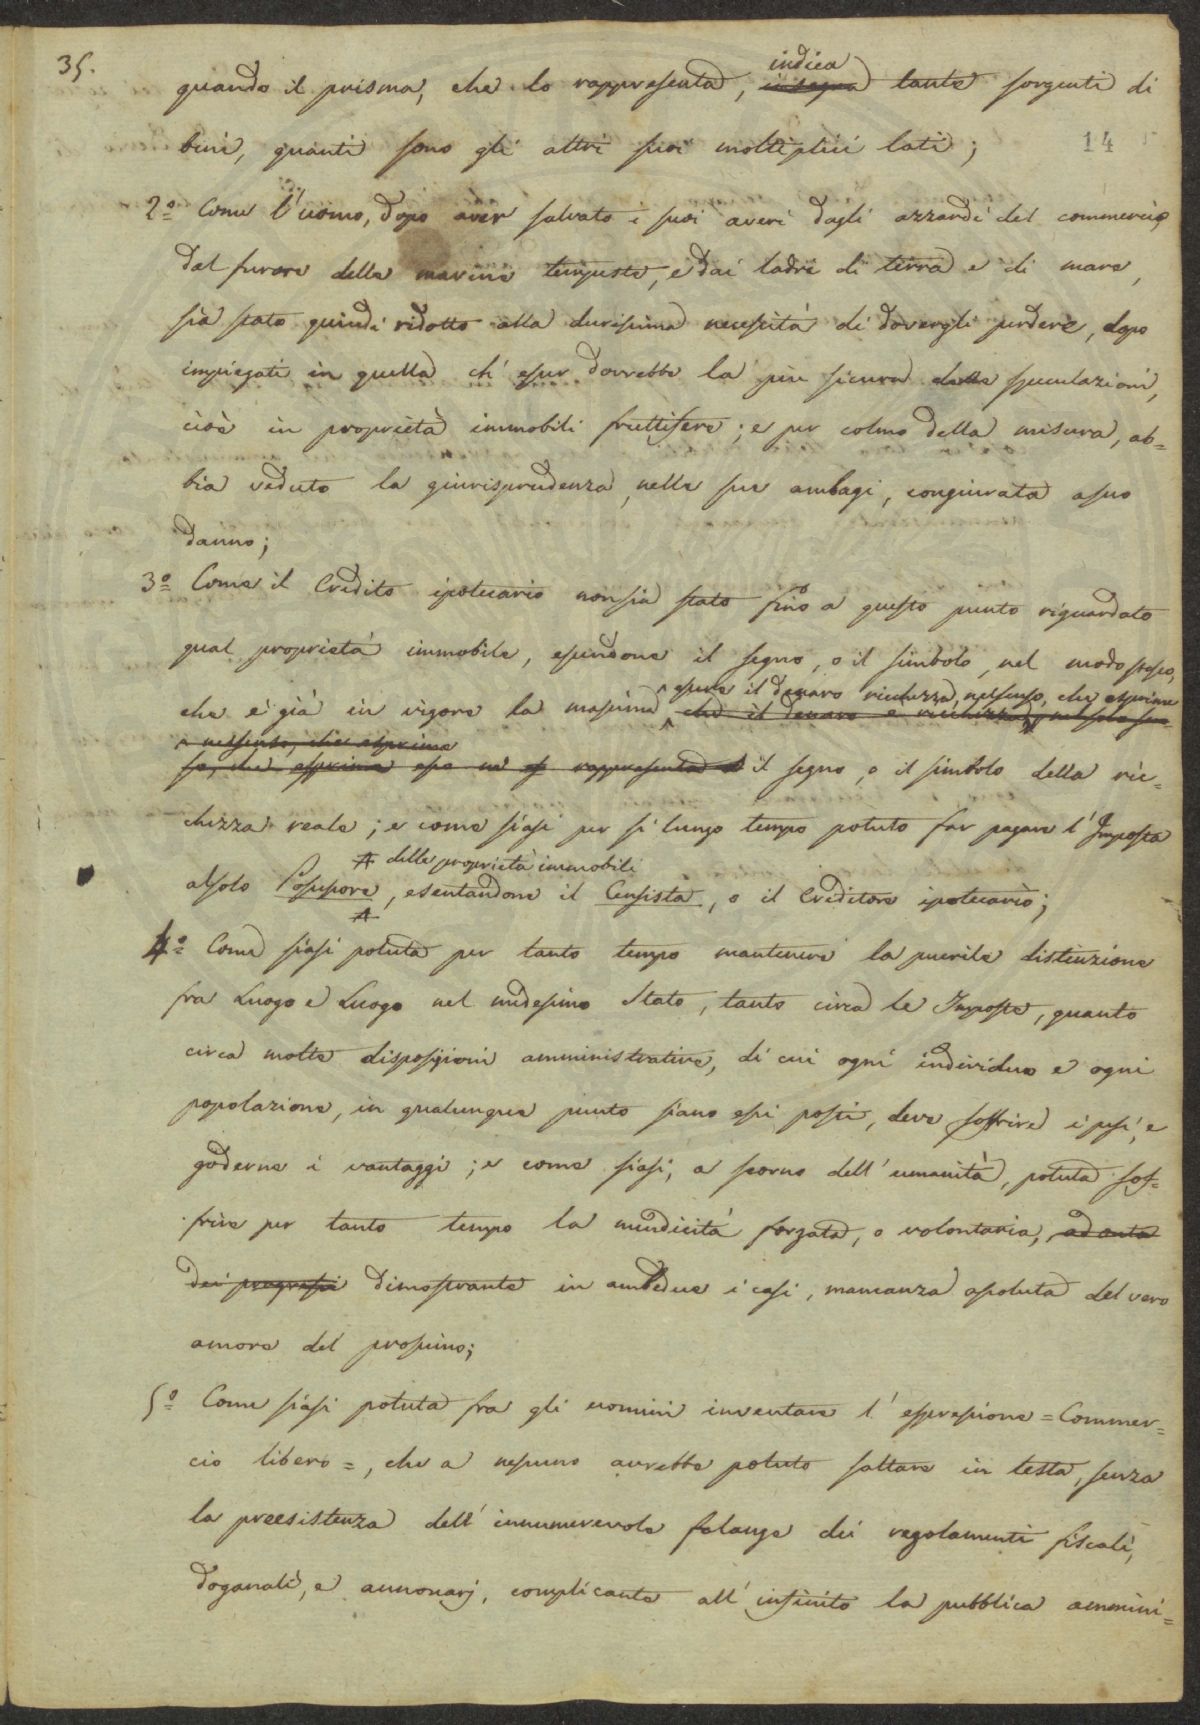 35.
indica
quando il prisma, che lo rappresenta, insegna tante sorgenti di
14
beni, quanti sono gli altri suoi moltiplici lati;
2º Come l'uomo, dopo aver salvato i suoi averi dagli azzardi del commercio,
dal furore delle marine tempeste, e dai ladri di terra e di mare,
sia stato quindi ridotto alla durissima necessità di dovergli perdere, dopo
impiegati in quella ch'esser dovrebbe la più sicura delle speculazioni,
cioè in proprietà immobili fruttifere; e per colmo della misura, ab=
bia veduto la giurisprudenza, nelle sue ambagi, congiurata a suo
danno;
3º Come il Credito ipotecario non sia stato fino a questo punto riguardato
qual proprietà immobile, essendone il segno, o il simbolo, nel modo stesso,
essere il denaro ricchezza, nel senso, che esprime
che è già in vigore la massima che il denaro è ricchezza, nel solo sen=
nel senso, che esprime
so, che esprime esso ne rappresenta il segno, o il simbolo della ric=
chezza reale; e come siasi per sì lungo tempo potuto far pagare l'Imposta
delle proprietà immobili
al solo Possessore, esentandone il Censista, o il Creditore ipotecario;
4º Come siasi potuta per tanto tempo mantenere la puerile distinzione
fra Luogo e Luogo nel medesimo Stato, tanto circa le Imposte, quanto
circa molte disposizioni amministrative, di cui ogni individuo e ogni
popolazione, in qualunque punto siano essi posti, deve soffrire i pesi, e
goderne i vantaggi; e come siasi, a scorno dell'umanità, potuta sof=
frire per tanto tempo la mendicità forzata, o volontaria, ad onta
dei progressi dimostrante in ambedue i casi, mancanza assoluta del vero
amore del prossimo;
5º Come siasi potuta fra gli uomini inventare l'espressione = Commer=
cio libero =, che a nessuno avrebbe potuto saltare in testa, senza
la preesistenza dell'innumerevole falange dei regolamenti fiscali,
doganali, e annonarj, complicante all'infinito la pubblica ammini=